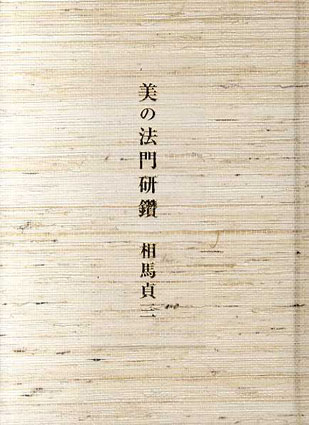 美の法門研鑽 相馬貞三